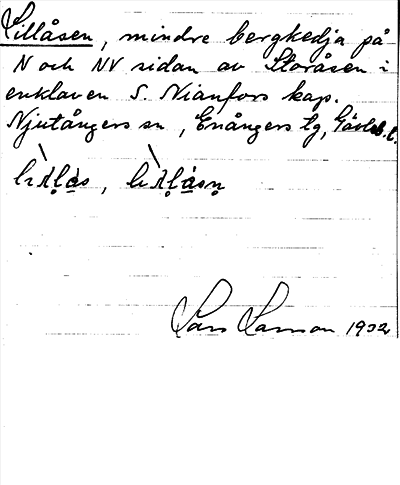 Lillåsen, mindre bergkedja på
N och NV sidan av Storåsen i
enklaven S. Nianfors kap.
Njutångers sn, Enångers tg, Gävleb. l.
Lars Larsson 1932